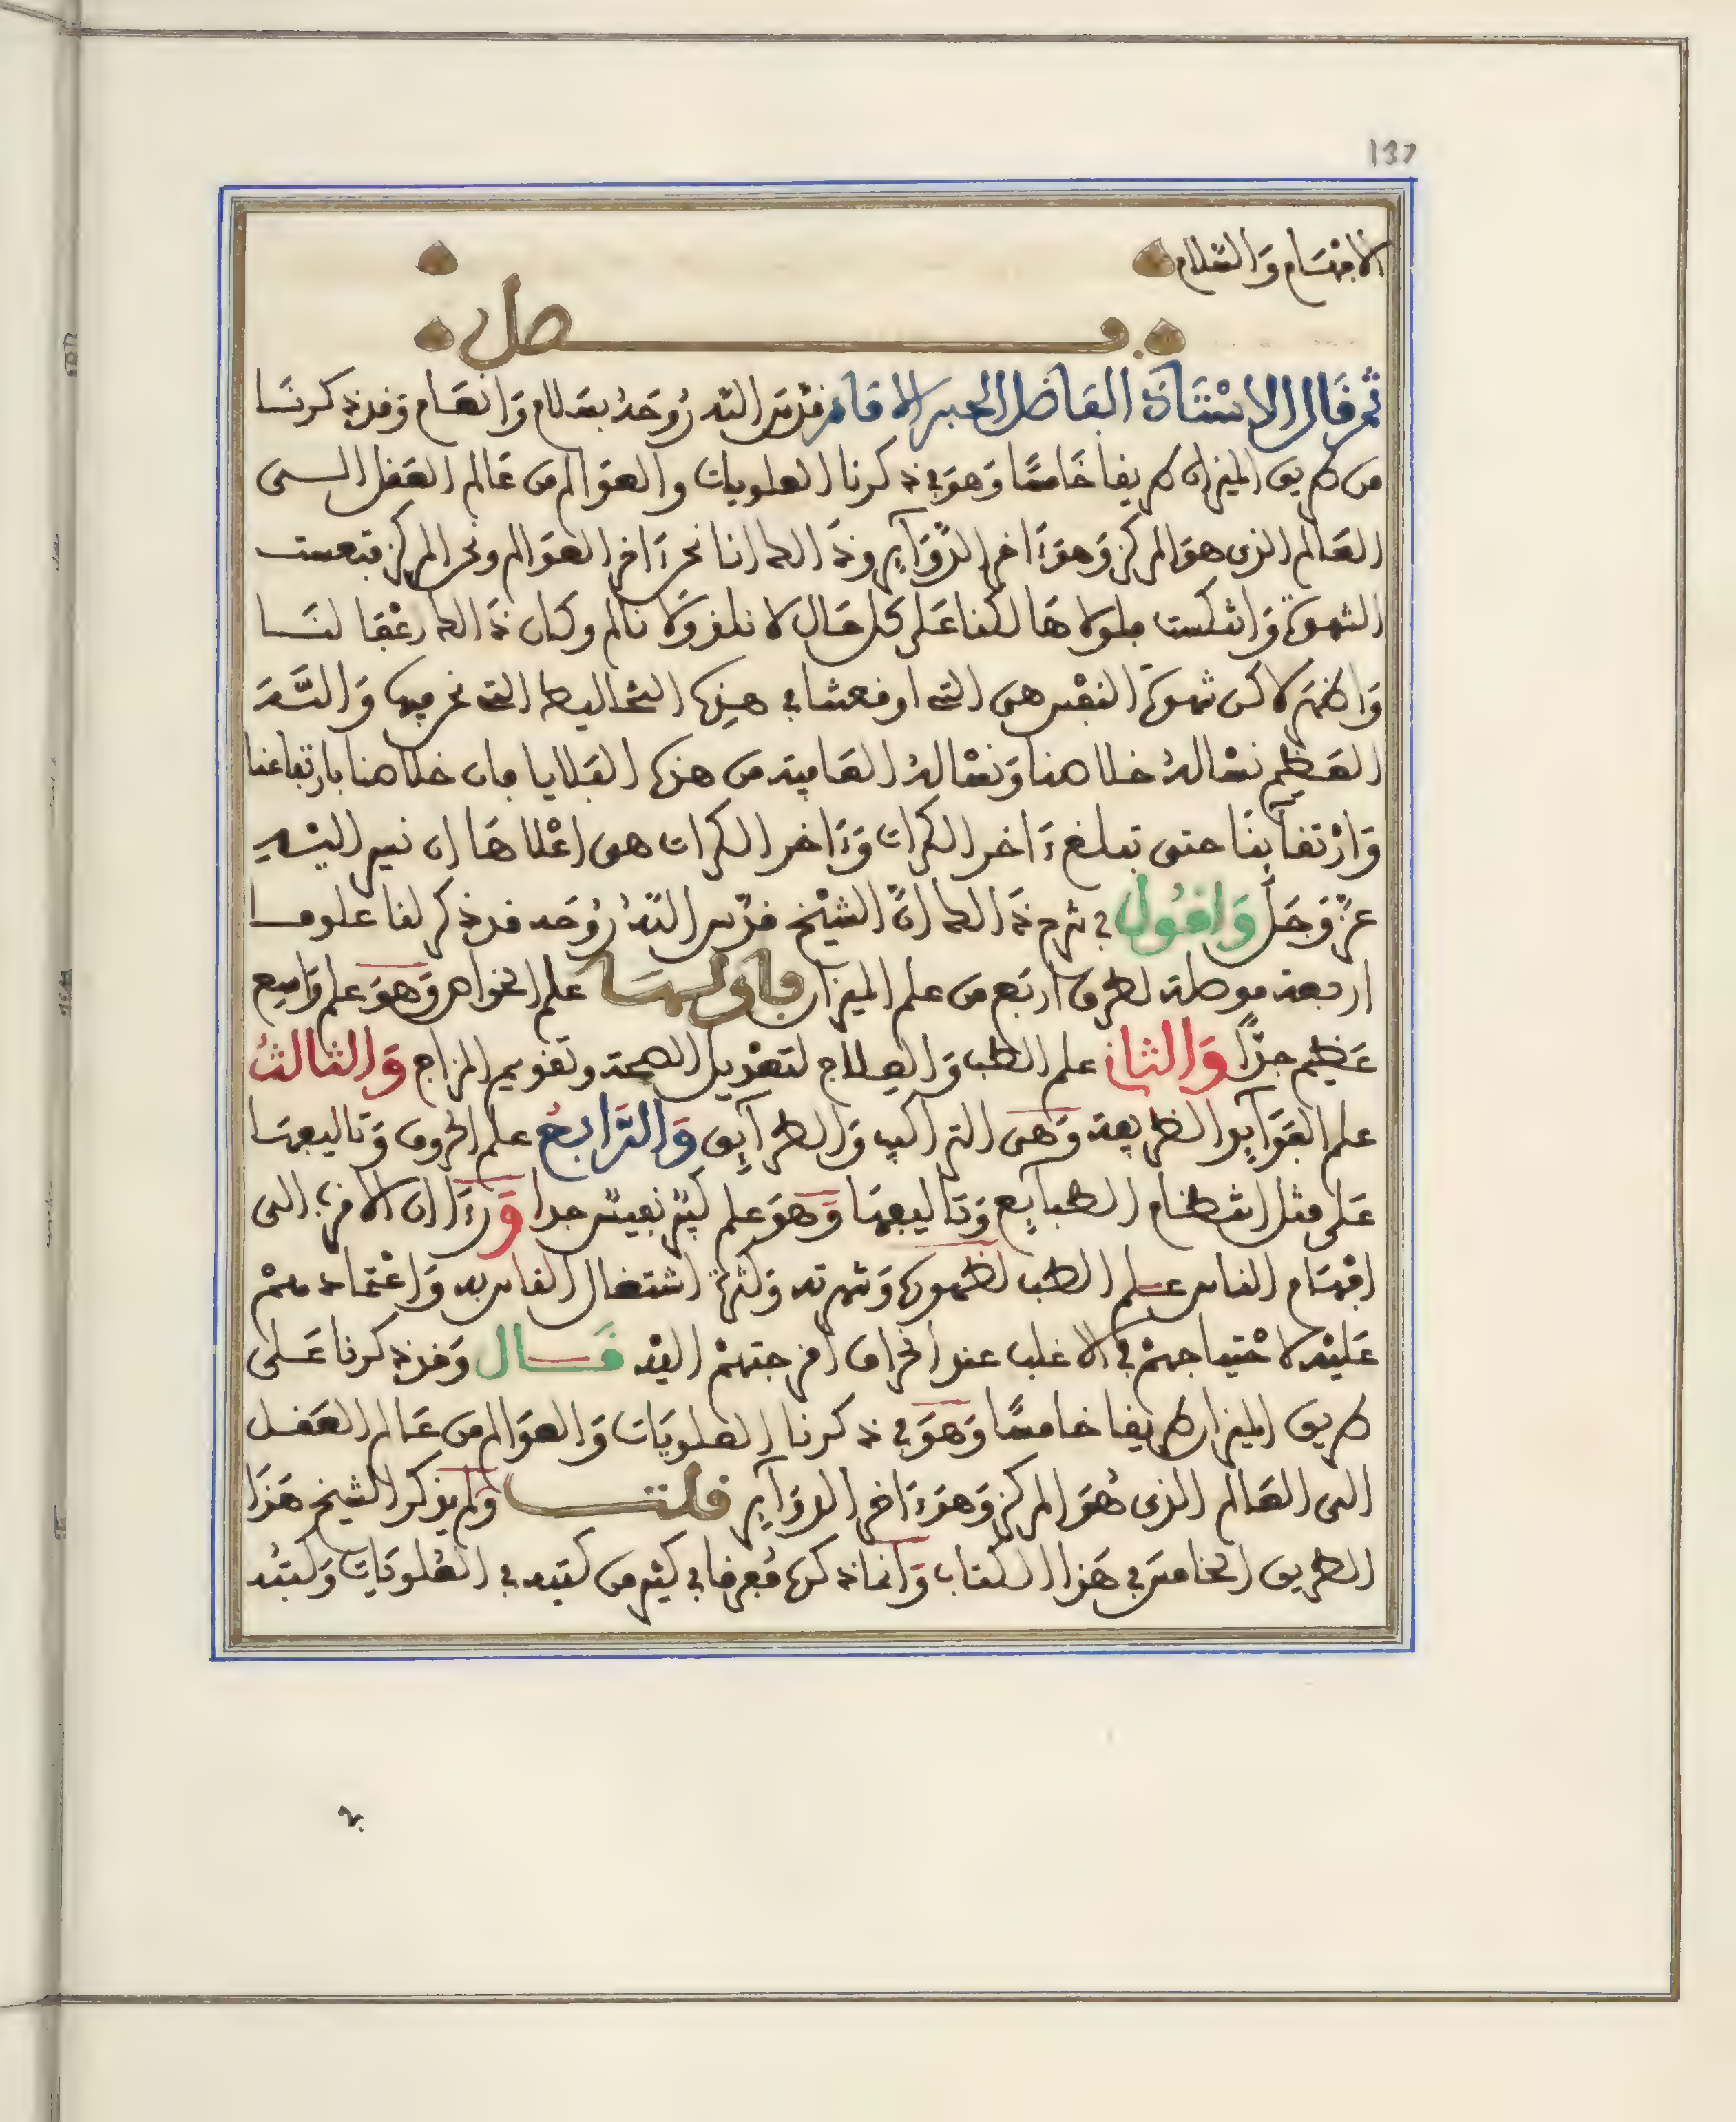 137
الاجسام والسلام
فصل
ثم قال الاستاذ الفاضل الحبر الامام قدس الله روحه بسلام وانعام وقد ذكرنا
من طريق الميزان طريقا خامسا وهو في ذكرنا العلويات والعوالم من عالم العقل الى
العالم الذي هو المركز وهو ءاخر الدوآير وذالك اننا نحن ءاخر العوالم ونحن المركز فتعست
الشهوة وانتكست فلولاها لكنا على كل حال لا نلذ ولا نالم وكان ذالك رفقا لنا
واظهر لاكن شهوة النفس هي التي اوقعتنا في هذه التخاليط التي نحن فيها والله
العظيم نسأله خلاصنا ونسأله العافية من هذه البلايا فان خلاصنا بارتفاعنا
وارتقآينا حتى تبلغ ءاخر الكرات وءاخر الكرات هي اعلاها ان نسير اليه
عز وجل واقول في شرح ذالك ان الشيخ قدس الله روحه قد ذكر لنا علوما
اربعة موصلة لطرق اربع من علم الميزان فاولها علم الخواص وهو علم واسع
عظيم جدا والثاني علم الطب والعلاج لتعديل الصحة وتقويم المزاج والثالث
علم الفوآيد الطريفة وهي التراكيب والطرآيق والرابع علم الحروف وتاليفها
على مثل انتظام الطبايع وتاليفها وهو علم كبير نفيس جدا ورءا ان الاقرب الى
افهام الناس علم الطب لظهوره وشهرته وكثرة اشتغال الناس به واعتمادهم
عليه لاحتياجهم في الاغلب عند انحراف امزجتهم اليه قال وقد ذكرنا على
طريق الميزان طريقا خامسا وهو في ذكرنا العلويات والعوالم من عالم العقل
الى العالم الذي هو المركز وهو ءاخر الدوآير قلت ولم يذكر الشيخ هذا
الطريق الخامس في هذا الكتاب وانما ذكره مفرقا في كثير من كتبه في العلويات وكتبه